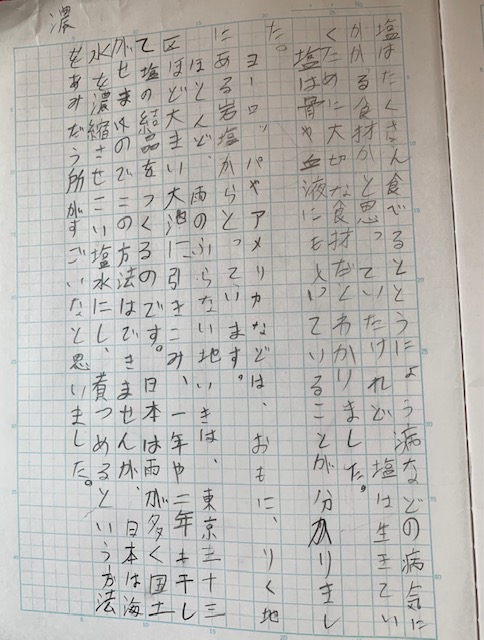 塩はたくさん食べるととうにょう病などの病気に
かかる食材かと思っていたけれど塩は生きてい
くために大切な食材だとわかりました。
塩は骨や血液にも入っていることが分かりまし
た。
ヨーロッパやアメリカなどは、おもに、りく地
にある岩塩からとっています。
ほとんど、雨のふらない地いきは、東京二十三
区ほど大きい大池に引きこみ、一年や二年も干し
て塩の結晶をつくるのです。日本は雨が多く国土
がせまいのでこの方法はできませんが、日本は海
水を濃縮させこい塩水にし、煮つめるという方法
をあみだう所がすごいなと思いました。
濃